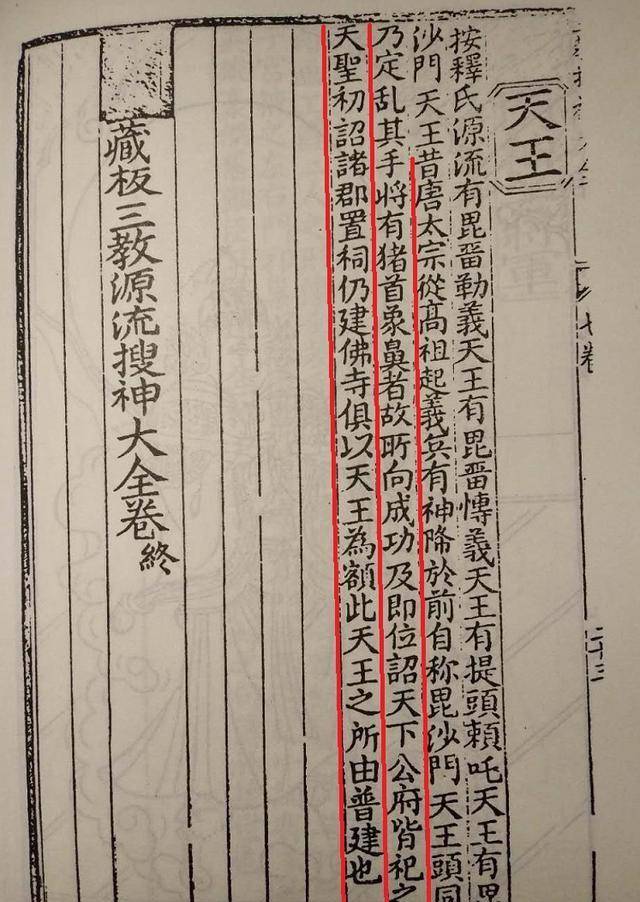 七卷
二十三
天王
按釋氏源流有毘畱勒義天王有毘畱慱義天王有提頭頼吒天王有毘
沙門天王昔唐太宗從髙祖起義兵有神降於前自称毘沙門天王頭同
乃定乱其手將有猪首象鼻者故所向成功及即位詔天下公府皆祀之
天聖初詔諸郡置祠仍建佛寺俱以天王為額此天王之所由普建也
藏板三教源流搜神大全卷終